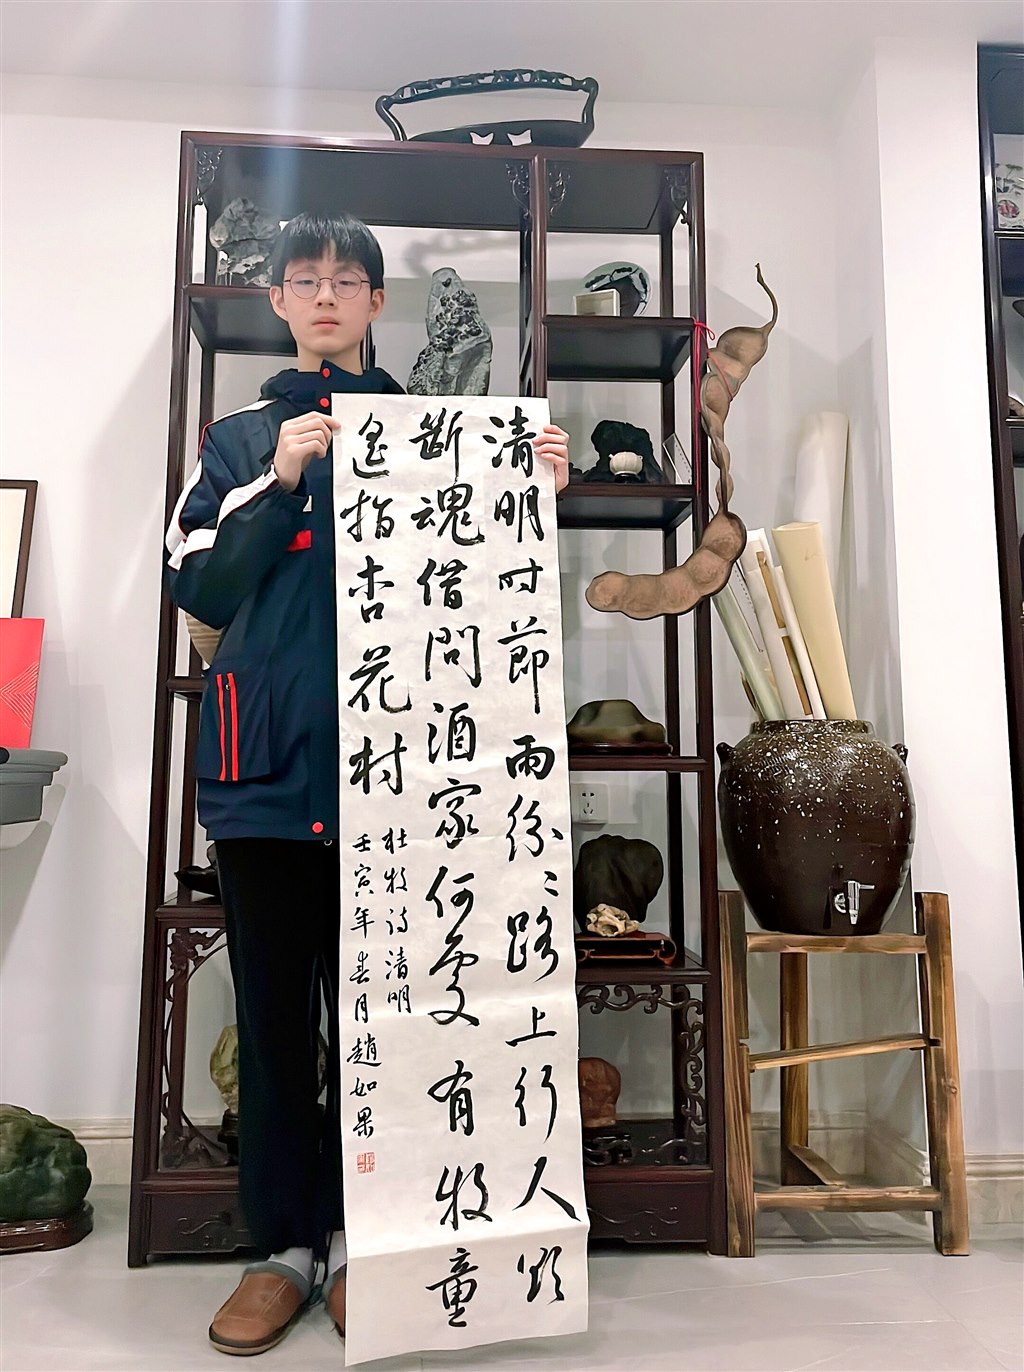 清明时節雨紛〻路上行人欲
断魂借問酒家何處有牧童
遥指杏花村
杜牧诗清明
壬寅年春月趙如果